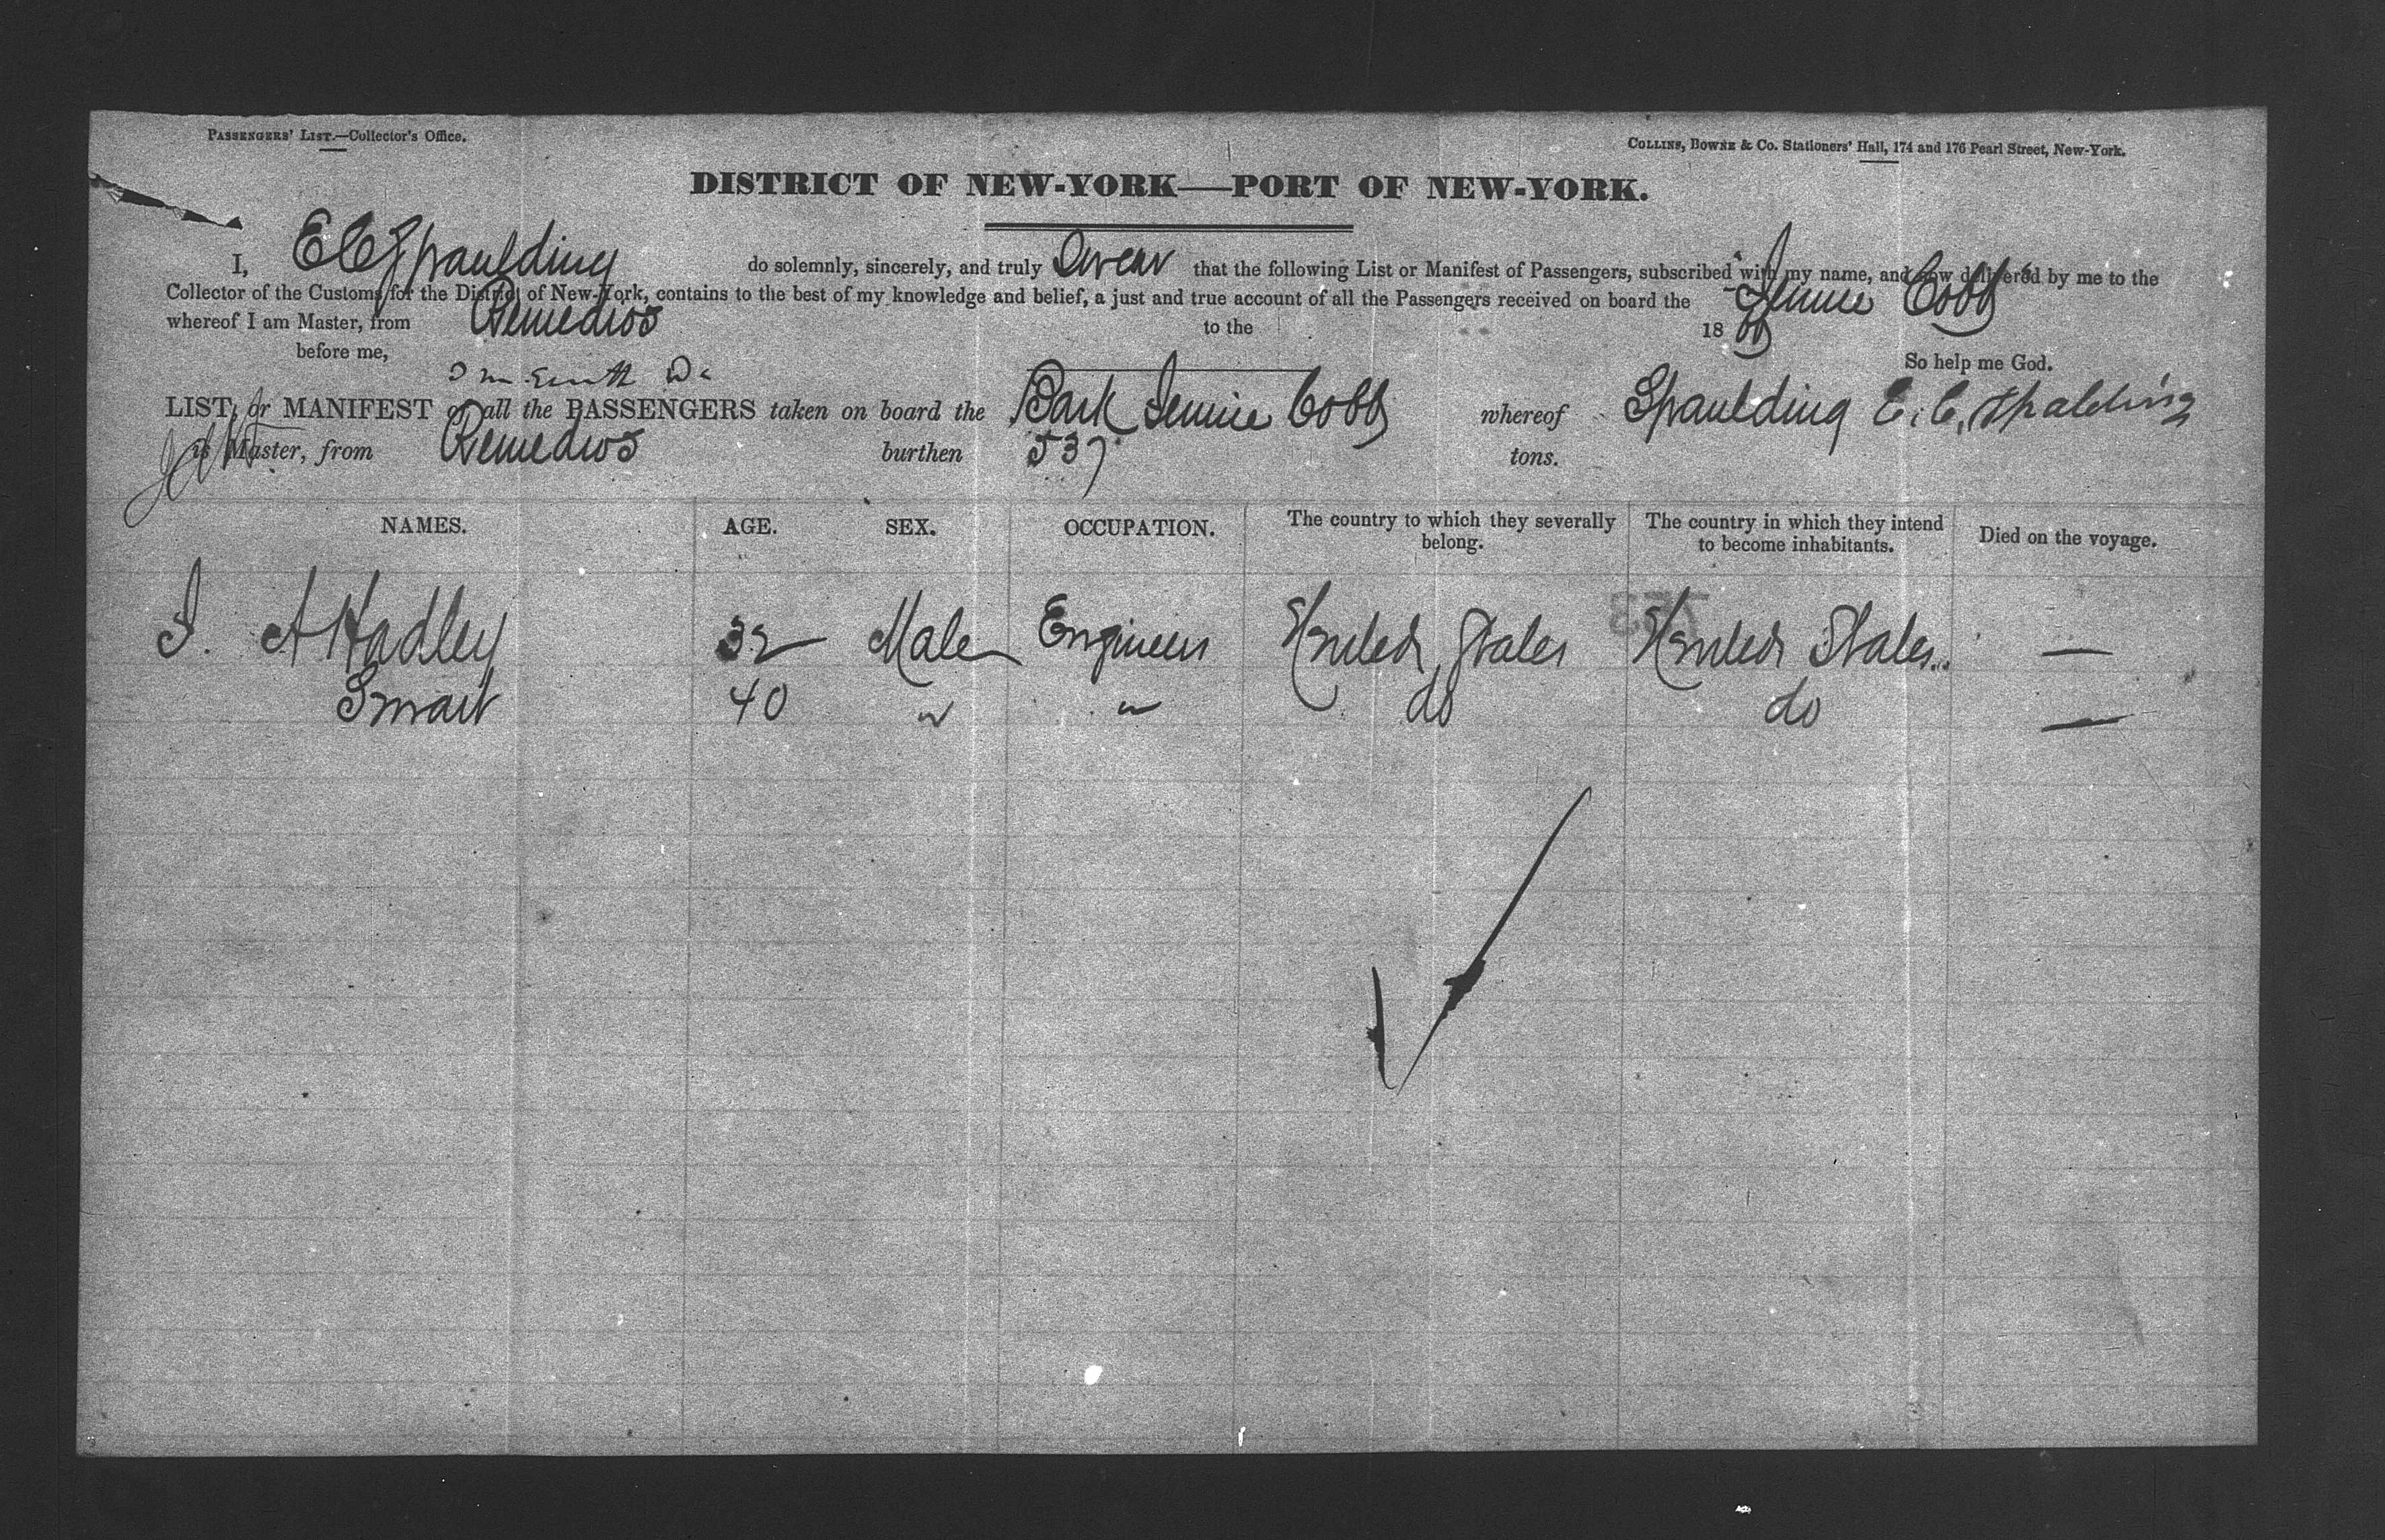 PASSENGERS' LIST.—Collector's Office.
COLLINS, BOWNE & Co. Stationers' Hall, 174 and 176 Pearl Street, New-York.
DISTRICT OF NEW-YORK—PORT OF NEW-YORK.
I, E C Spaulding do solemnly, sincerely, and truly Swear that the following List or Manifest of Passengers, subscribed with my name, and now delivered by me to the
Collector of the Customs for the District of New-York, contains to the best of my knowledge and belief, a just and true account of all the Passengers received on board the Jennie Cobb
whereof I am Master, from Remedios to the 18
before me, So help me God.
LIST or MANIFEST of all the PASSENGERS taken on board the Bark Jennie Cobb whereof Spaulding E. C. Spalding
is Master, from Remedios burthen 537 tons.
NAMES. AGE. SEX. OCCUPATION. The country to which they severally belong. The country in which they intend to become inhabitants. Died on the voyage.
A Hadley 32 Male Engineer United States United States —
Smart 40 " " do do —